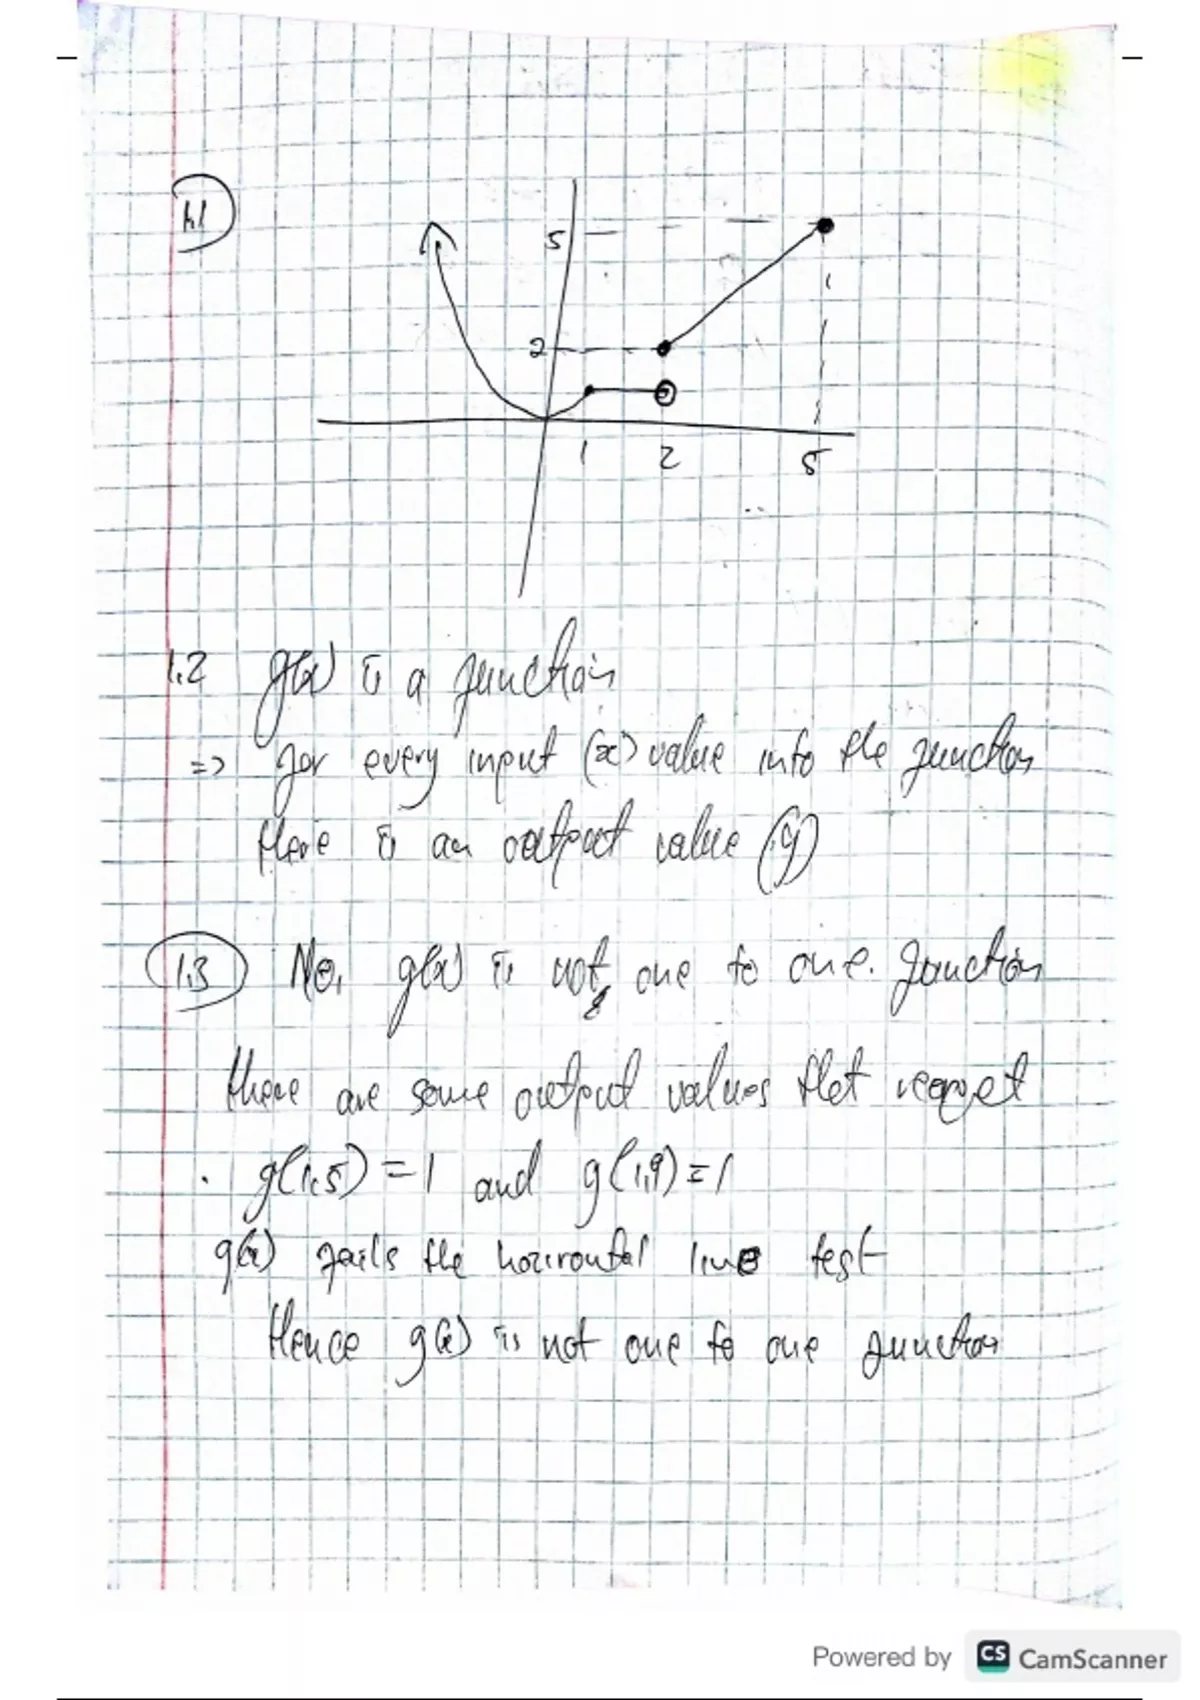 1.1
5
2
1 2 5
1.2 g(x) is a function
=> for every input (x) value into the function
there is an output value (y)
1.3 No, g(x) is not one to one. function
there are some output values that repeat
. g(1,5) = 1 and g(1,9) = 1
g(x) fails the horizontal line test
Hence g(x) is not one to one function
Powered by CS CamScanner